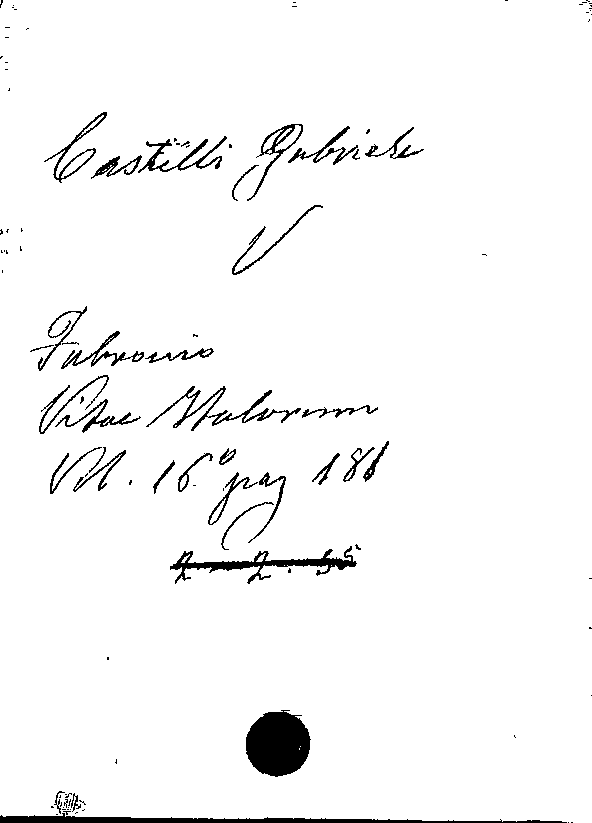 Castelli Gabriele
V
Fabronio
Vitae Italorum
Vol. 16° pag 181
2 2. 55